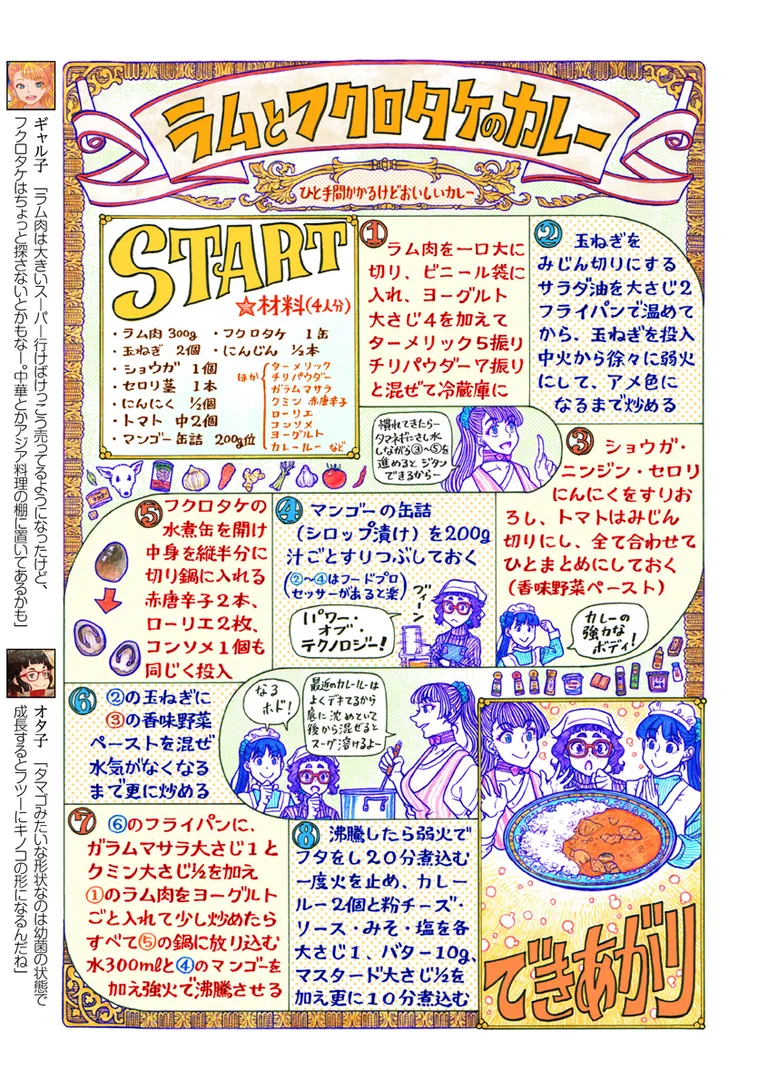 ラムとフクロタケのカレー
ひと手間かかるけどおいしいカレー
START
☆材料(4人分)
・ラム肉 300g ・フクロタケ 1缶
・玉ねぎ 2個 ・にんじん ½本
・ショウガ 1個
・セロリ茎 1本
・にんにく ½個
・トマト 中2個
・マンゴー缶詰 200g位
ほか
ターメリック
チリパウダー
ガラムマサラ
クミン 赤唐辛子
ローリエ
コンソメ
ヨーグルト
カレールー など
①
ラム肉を一口大に
切り、ビニール袋に
入れ、ヨーグルト
大さじ4を加えて
ターメリック5振り
チリパウダー7振り
と混ぜて冷蔵庫に
②
玉ねぎを
みじん切りにする
サラダ油を大さじ2
フライパンで温めて
から、玉ねぎを投入
中火から徐々に弱火
にして、アメ色に
なるまで炒める
慣れてきたら
タマネギにさし水
しながら③〜⑤を
進めるとジタン
できるからー
③
ショウガ・
ニンジン・セロリ
にんにくをすりお
ろし、トマトはみじん
切りにし、全て合わせて
ひとまとめにしておく
(香味野菜ペースト)
カレーの
強力な
ボディ!
④
マンゴーの缶詰
(シロップ漬け)を200g
汁ごとすりつぶしておく
(②〜④はフードプロ
セッサーがあると楽)
ヴィーン
パワー・
オブ・
テクノロジー!
⑤
フクロタケの
水煮缶を開け
中身を縦半分に
切り鍋に入れる
赤唐辛子2本、
ローリエ2枚、
コンソメ1個も
同じく投入
⑥
②の玉ねぎに
③の香味野菜
ペーストを混ぜ
水気がなくなる
まで更に炒める
なる
ホド!
最近のカレールーは
よくデキてるから
底に沈めといて
後から混ぜると
スーグ溶けるよー
⑦
⑥のフライパンに、
ガラムマサラ大さじ1と
クミン大さじ½を加え
①のラム肉をヨーグルト
ごと入れて少し炒めたら
すべて⑤の鍋に放り込む
水300mlと④のマンゴーを
加え強火で沸騰させる
⑧
沸騰したら弱火で
フタをし20分煮込む
一度火を止め、カレー
ルー2個と粉チーズ・
ソース・みそ・塩を各
大さじ1、バター10g、
マスタード大さじ½を
加え更に10分煮込む
できあがり
ギャル子 「ラム肉は大きいスーパー行けばけっこう売ってるようになったけど、
フクロタケはちょっと探さないとかもなー。中華とかアジア料理の棚に置いてあるかも」
オタ子 「タマゴみたいな形状なのは幼菌の状態で
成長するとフツーにキノコの形になるんだね」